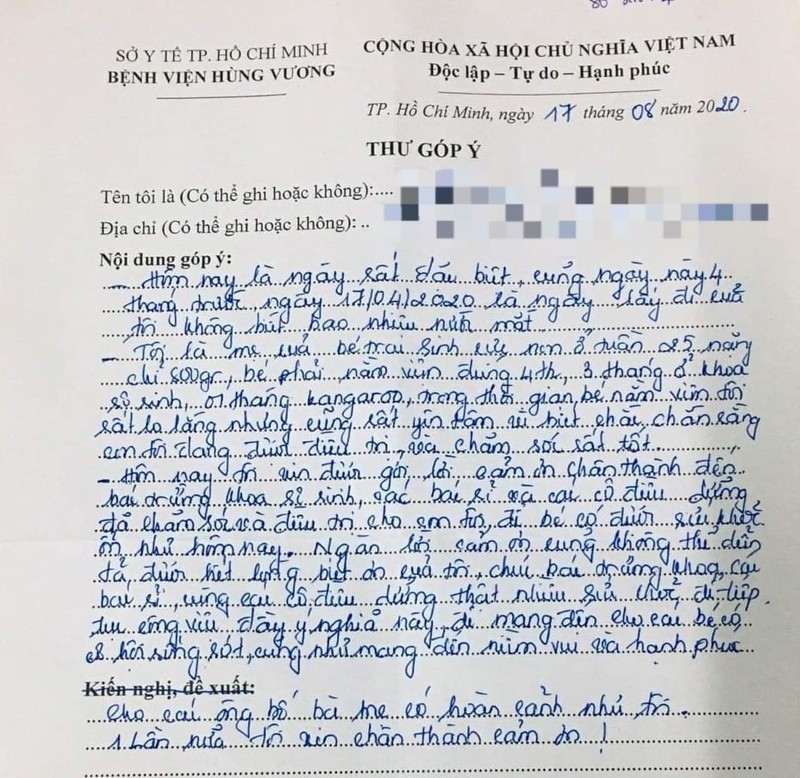 SỞ Y TẾ TP. HỒ CHÍ MINH
BỆNH VIỆN HÙNG VƯƠNG
CỘNG HÒA XÃ HỘI CHỦ NGHĨA VIỆT NAM
Độc lập – Tự do – Hạnh phúc
TP. Hồ Chí Minh, ngày 17 tháng 08 năm 2020.
THƯ GÓP Ý
Tên tôi là (Có thể ghi hoặc không):....
Địa chỉ (Có thể ghi hoặc không): ..
Nội dung góp ý:
– Hôm nay là ngày rất đặc biệt, cũng ngày này 4
tháng trước, ngày 17/04/2020 là ngày lấy đi của
tôi không biết bao nhiêu nước mắt
– Tôi là mẹ của bé trai sinh cực non ở tuần 25 nặng
chỉ 800gr, bé phải nằm viện đúng 4th, 3 tháng ở khoa
sơ sinh, 01 tháng kangaroo, trong thời gian bé nằm viện tôi
rất lo lắng nhưng cũng rất yên tâm vì biết chắc chắn rằng
con tôi đang được điều trị và chăm sóc rất tốt
– Hôm nay tôi xin được gởi lời cảm ơn chân thành đến
bác trưởng khoa sơ sinh, các bác sĩ và các cô điều dưỡng
đã chăm sóc và điều trị cho con tôi, để bé có được sức khỏe
ổn như hôm nay. Ngàn lời cảm ơn cũng không thể diễn
tả được hết lòng biết ơn của tôi, chúc bác trưởng khoa, các
bác sĩ, cùng các cô điều dưỡng thật nhiều sức khoẻ để tiếp
tục công việc đầy ý nghĩa này, để mang đến cho các bé có
cơ hội sống sót, cũng như mang đến niềm vui và hạnh phúc
Kiến nghị, đề xuất:
cho các ông bố bà mẹ có hoàn cảnh như tôi.
1 Lần nữa tôi xin chân thành cảm ơn !